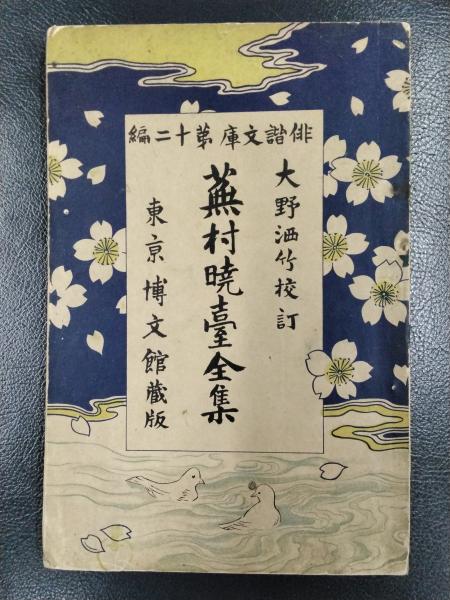 俳諧文庫第十二編
大野洒竹校訂
蕪村暁臺全集
東京博文館蔵版